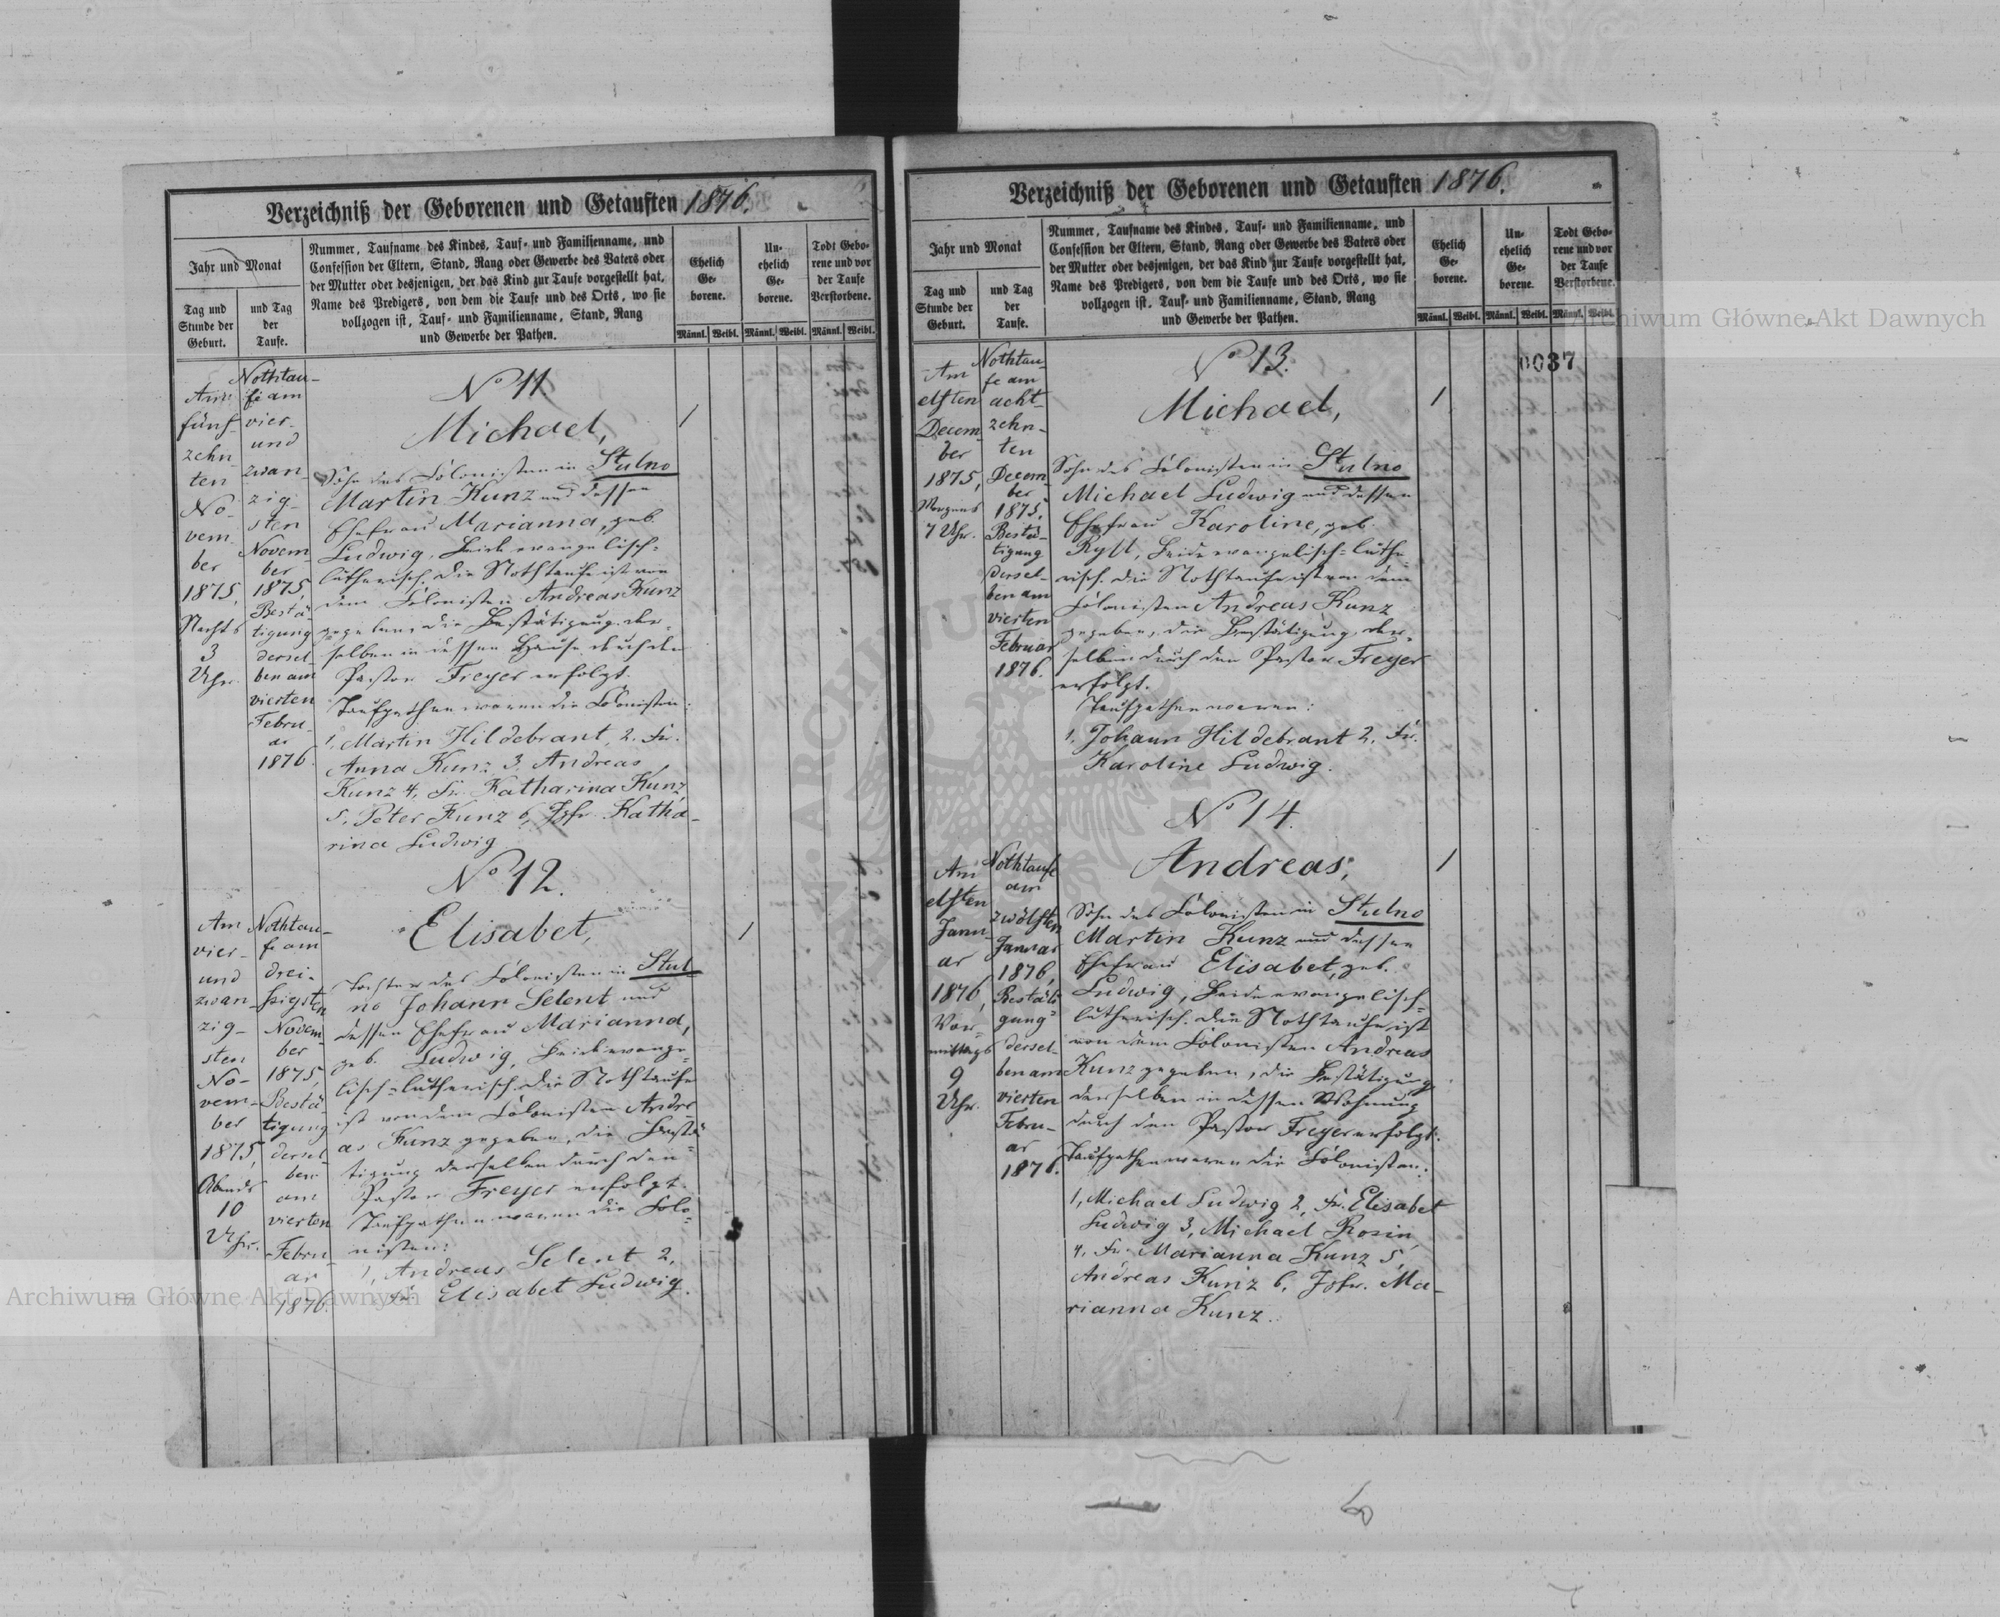 Verzeichniß der Geborenen und Getauften 1876.
Jahr und Monat
Tag und
Stunde der
Geburt.
und Tag
der
Taufe.
Nummer, Taufname des Kindes, Tauf- und Familienname, und
Confession der Eltern, Stand, Rang oder Gewerbe des Vaters oder
der Mutter oder desjenigen, der das Kind zur Taufe vorgestellt hat,
Name des Predigers, von dem die Taufe und des Orts, wo sie
vollzogen ist, Tauf- und Familienname, Stand, Rang
und Gewerbe der Pathen.
Ehelich
Ge-
borene.
Un-
ehelich
Ge-
borene.
Todt Gebo-
rene und vor
der Taufe
Verstorbene.
Männl. Weibl. Männl. Weibl. Männl. Weibl.
Am
fünf-
zehn-
ten
No-
vem-
ber
1875,
Nachts
3
Uhr.
Nothtau-
fe am
vier-
und
zwan-
zig-
sten
Novem-
ber
1875,
Bestä-
tigung
dersel-
ben am
vierten
Febru-
ar
1876.
No 11
Michael,
Sohn des Colonisten in Stulno
Martin Kunz und dessen
Ehefrau Marianna, geb.
Ludwig. Beide evangelisch-
lutherisch. Die Nothtaufe ist von
dem Colonisten Andreas Kunz
gegeben, die Bestätigung der-
selben in dessen Hause durch den
Pastor Freyer erfolgt.
Taufpathen waren die Colonisten:
1, Martin Hildebrant, 2. Fr.
Anna Kunz 3. Andreas
Kunz 4, Fr. Katharina Kunz
5, Peter Kunz 6, Jgfr. Katha-
rina Ludwig
1
Am
vier-
und
zwan-
zig-
sten
No-
vem-
ber
1875,
Abends
10
Uhr.
Nothtau-
fe am
drei-
ßigsten
Novem-
ber
1875,
Bestä-
tigung
dersel-
ben
am
vierten
Febru-
ar
1876.
No 12.
Elisabet,
Tochter des Colonisten in Stul-
no Johann Selent und
dessen Ehefrau Marianna,
geb. Ludwig, Beide evange-
lisch-lutherisch. Die Nothtaufe
ist von dem Colonisten Andre-
as Kunz gegeben, die Bestä-
tigung derselben durch den
Pastor Freyer erfolgt.
Taufpathen waren die Colo-
nisten:
1, Andreas Selent 2,
Fr. Elisabet Ludwig.
1
Verzeichniß der Geborenen und Getauften 1876.
Jahr und Monat
Tag und
Stunde der
Geburt.
und Tag
der
Taufe.
Nummer, Taufname des Kindes, Tauf- und Familienname, und
Confession der Eltern, Stand, Rang oder Gewerbe des Vaters oder
der Mutter oder desjenigen, der das Kind zur Taufe vorgestellt hat,
Name des Predigers, von dem die Taufe und des Orts, wo sie
vollzogen ist, Tauf- und Familienname, Stand, Rang
und Gewerbe der Pathen.
Ehelich
Ge-
borene.
Un-
ehelich
Ge-
borene.
Todt Gebo-
rene und vor
der Taufe
Verstorbene.
Männl. Weibl. Männl. Weibl. Männl. Weibl.
0037
Am
elften
Decem-
ber
1875,
Morgens
7 Uhr.
Nothtau-
fe am
acht-
zehn-
ten
Decem-
ber
1875,
Bestä-
tigung
dersel-
ben am
vierten
Februar
1876.
No 13.
Michael,
Sohn des Colonisten in Stulno
Michael Ludwig und dessen
Ehefrau Karoline, geb.
Beide evangelisch-luthe-
risch. Die Nothtaufe ist von dem
Colonisten Andreas Kunz
gegeben, die Bestätigung der-
selben durch den Pastor Freyer
erfolgt.
Taufpathen waren:
1, Johann Hildebrant 2, Fr.
Karoline Ludwig.
1
Am
elften
Janu-
ar
1876,
Vor-
mittags
9
Uhr.
Nothtaufe
am
zwölften
Januar
1876,
Bestäti-
gung
dersel-
ben am
vierten
Febru-
ar
1876.
No 14.
Andreas,
Sohn des Colonisten in Stulno
Martin Kunz und dessen
Ehefrau Elisabet, geb.
Ludwig, Beide evangelisch-
lutherisch. Die Nothtaufe ist
von dem Colonisten Andreas
Kunz gegeben, die Bestätigung
derselben in dessen Wohnung
durch den Pastor Freyer erfolgt.
Taufpathen waren die Colonisten:
1, Michael Ludwig 2, Fr. Elisabet
Ludwig 3, Michael Rosin
4, Fr. Marianna Kunz 5,
Andreas Kunz 6, Jgfr. Ma-
rianna Kunz.
1
Archiwum Główne Akt Dawnych
Archiwum Główne Akt Dawnych